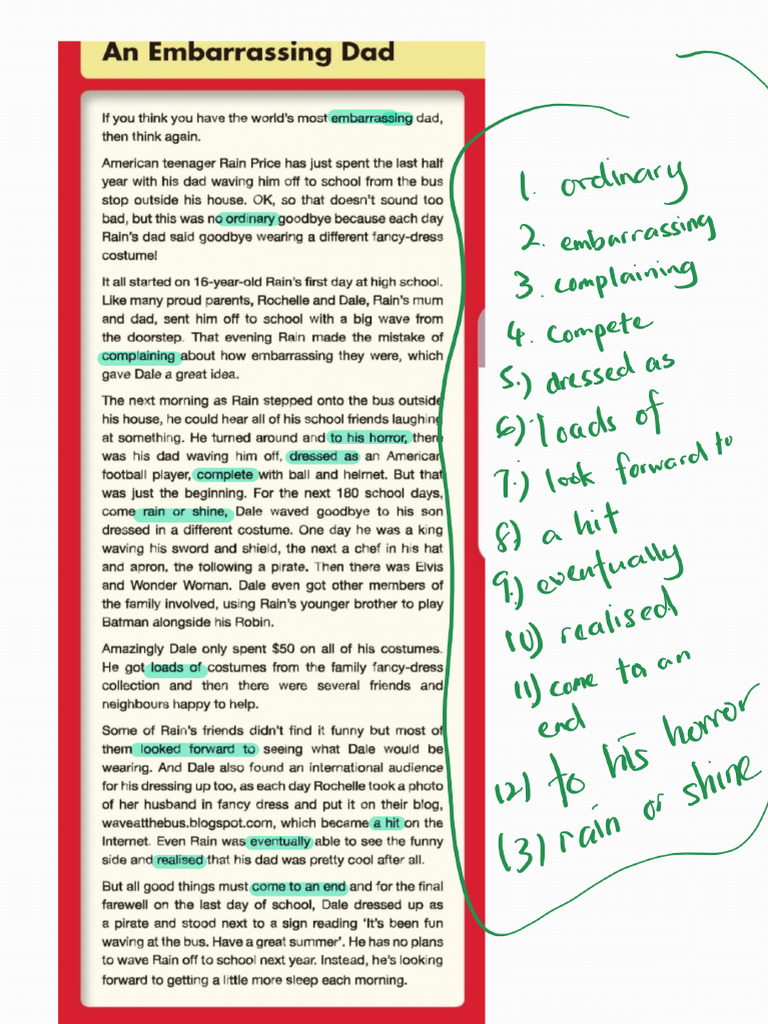 An Embarrassing Dad
If you think you have the world's most embarrassing dad,
then think again.
American teenager Rain Price has just spent the last half
year with his dad waving him off to school from the bus
stop outside his house. OK, so that doesn't sound too
bad, but this was no ordinary goodbye because each day
Rain's dad said goodbye wearing a different fancy-dress
costume!
It all started on 16-year-old Rain's first day at high school.
Like many proud parents, Rochelle and Dale, Rain's mum
and dad, sent him off to school with a big wave from
the doorstep. That evening Rain made the mistake of
complaining about how embarrassing they were, which
gave Dale a great idea.
The next morning as Rain stepped onto the bus outside
his house, he could hear all of his school friends laughing
at something. He turned around and to his horror, there
was his dad waving him off, dressed as an American
football player, complete with ball and helmet. But that
was just the beginning. For the next 180 school days,
come rain or shine, Dale waved goodbye to his son
dressed in a different costume. One day he was a king
waving his sword and shield, the next a chef in his hat
and apron, the following a pirate. Then there was Elvis
and Wonder Woman. Dale even got other members of
the family involved, using Rain's younger brother to play
Batman alongside his Robin.
Amazingly Dale only spent $50 on all of his costumes.
He got loads of costumes from the family fancy-dress
collection and then there were several friends and
neighbours happy to help.
Some of Rain's friends didn't find it funny but most of
them looked forward to seeing what Dale would be
wearing. And Dale also found an international audience
for his dressing up too, as each day Rochelle took a photo
of her husband in fancy dress and put it on their blog,
waveatthebus.blogspot.com, which became a hit on the
Internet. Even Rain was eventually able to see the funny
side and realised that his dad was pretty cool after all.
But all good things must come to an end and for the final
farewell on the last day of school, Dale dressed up as
a pirate and stood next to a sign reading 'It's been fun
waving at the bus. Have a great summer'. He has no plans
to wave Rain off to school next year. Instead, he's looking
forward to getting a little more sleep each morning.
1. ordinary
2. embarrassing
3. complaining
4. compete
5.) dressed as
6) loads of
7.) look forward to
8) a hit
9.) eventually
10) realised
11) come to an
end
12) to his horror
13) rain or shine